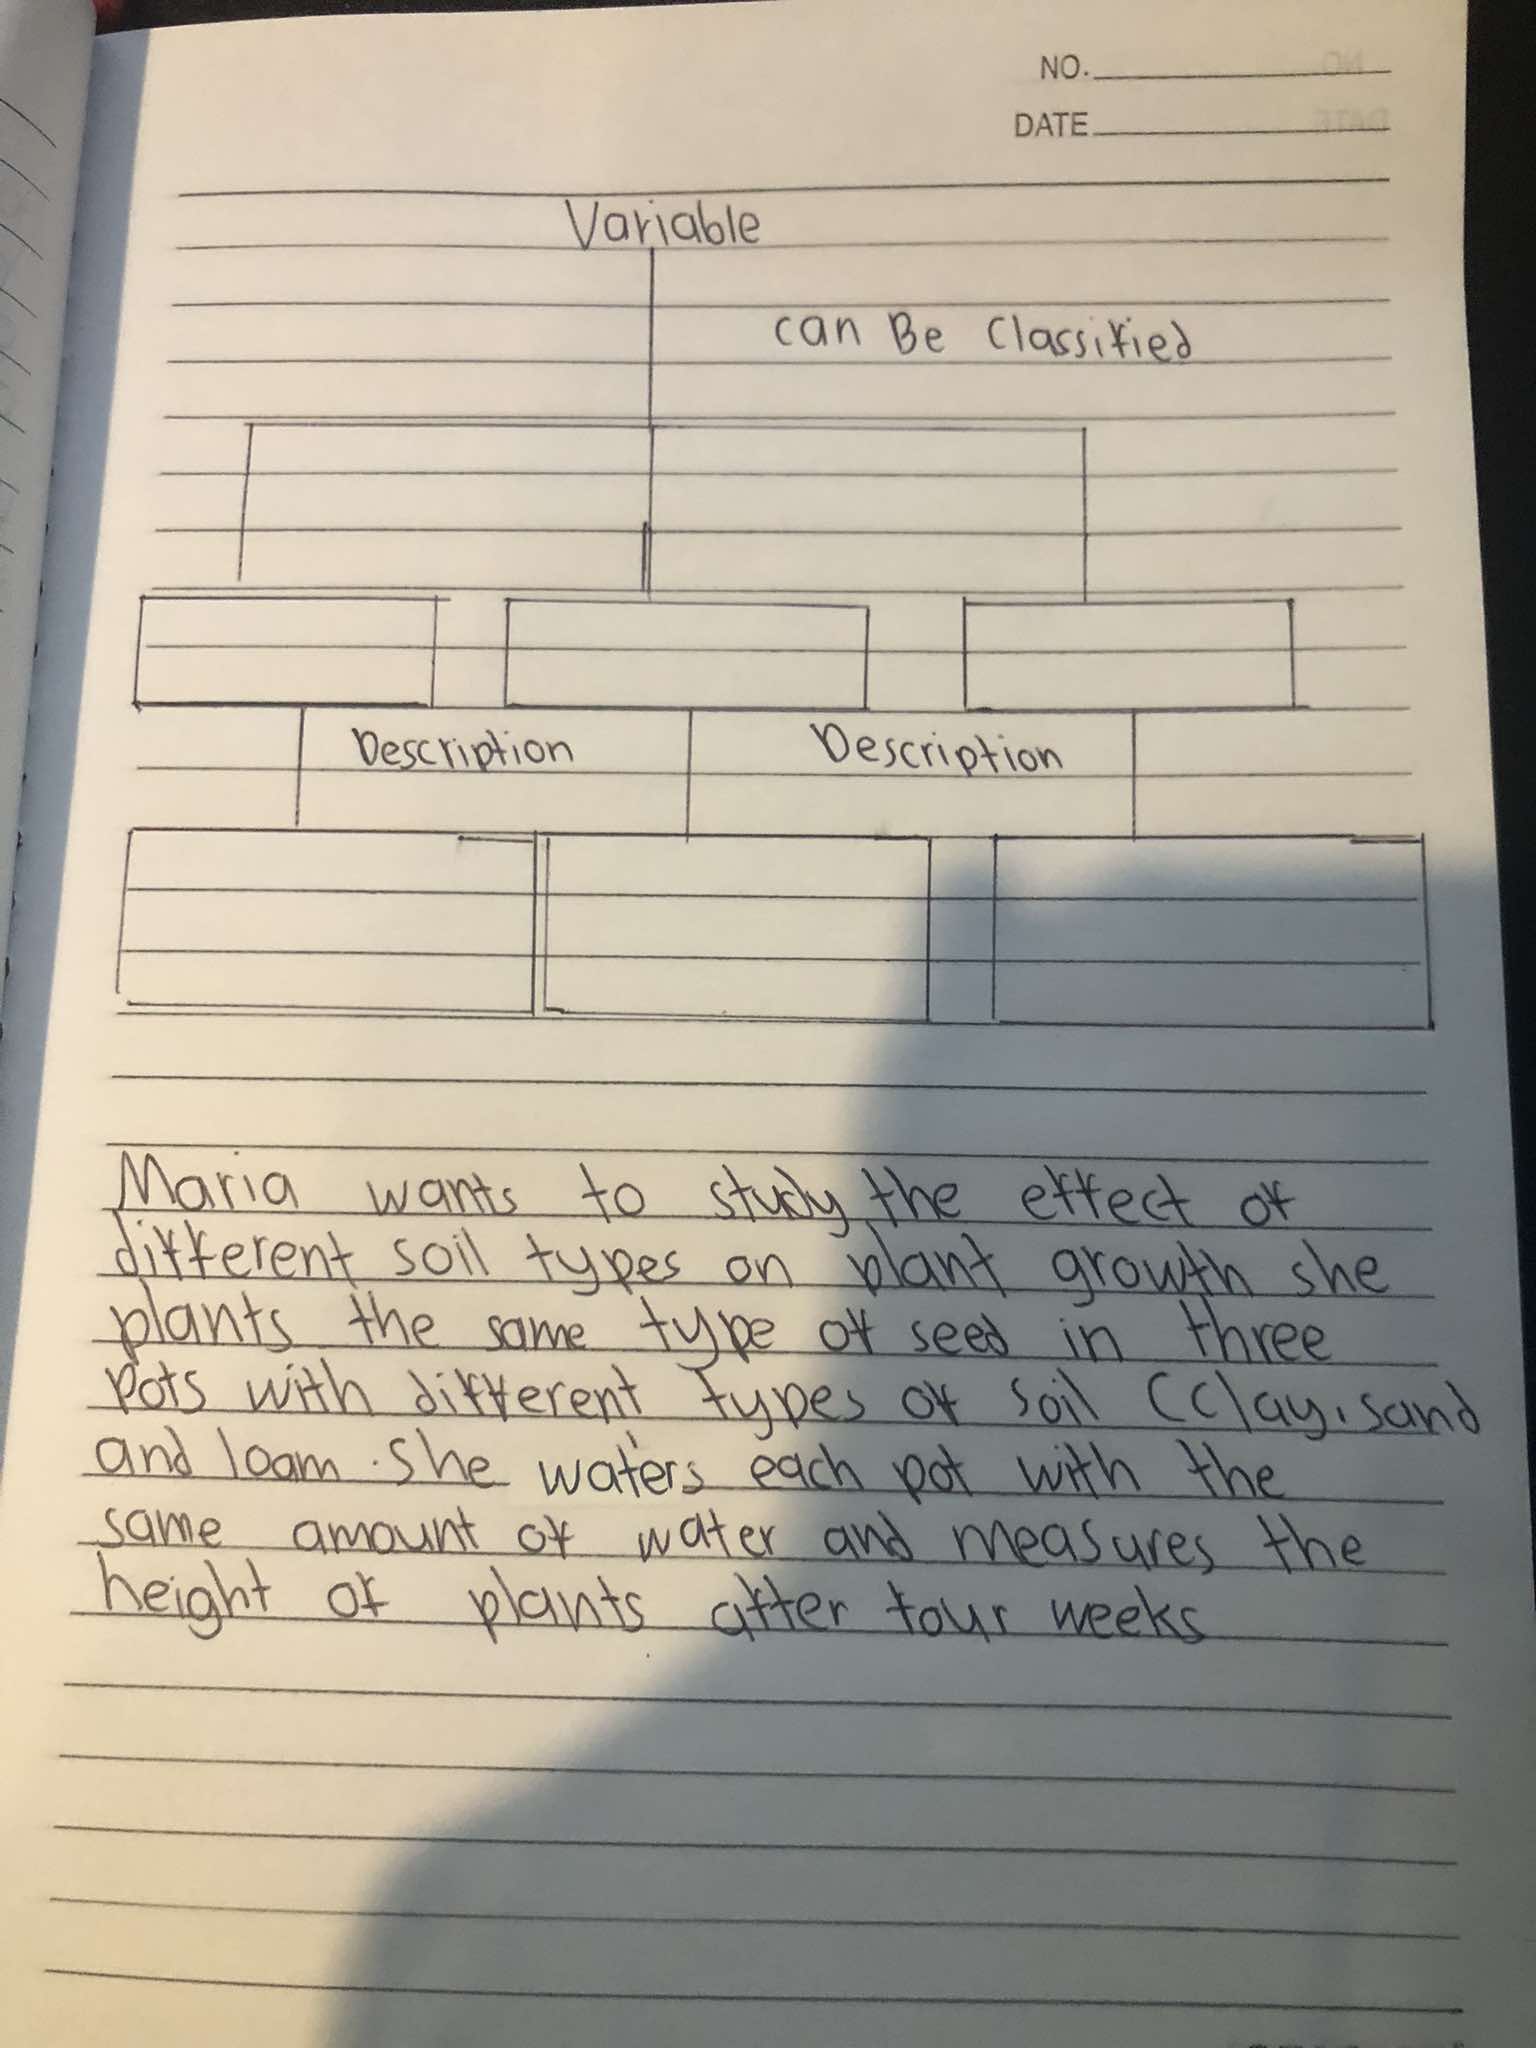 NO.
DATE
Variable
can Be Classified
Description Description
Maria wants to study the effect of
different soil types on plant growth she
plants the same type of seed in three
pots with different types of soil (clay, sand
and loam. She waters each pot with the
same amount of water and measures the
height of plants after four weeks